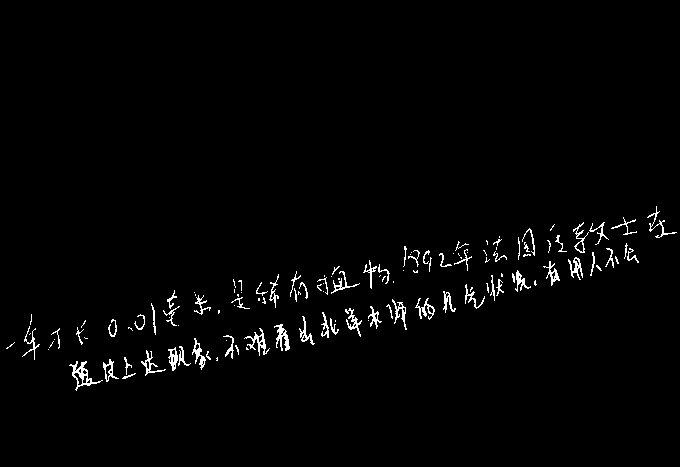 一年才长0.01毫米,是稀有植物,1892年法国传教士在
上述现象,不难看出北洋水师的几点状况,有用人不会